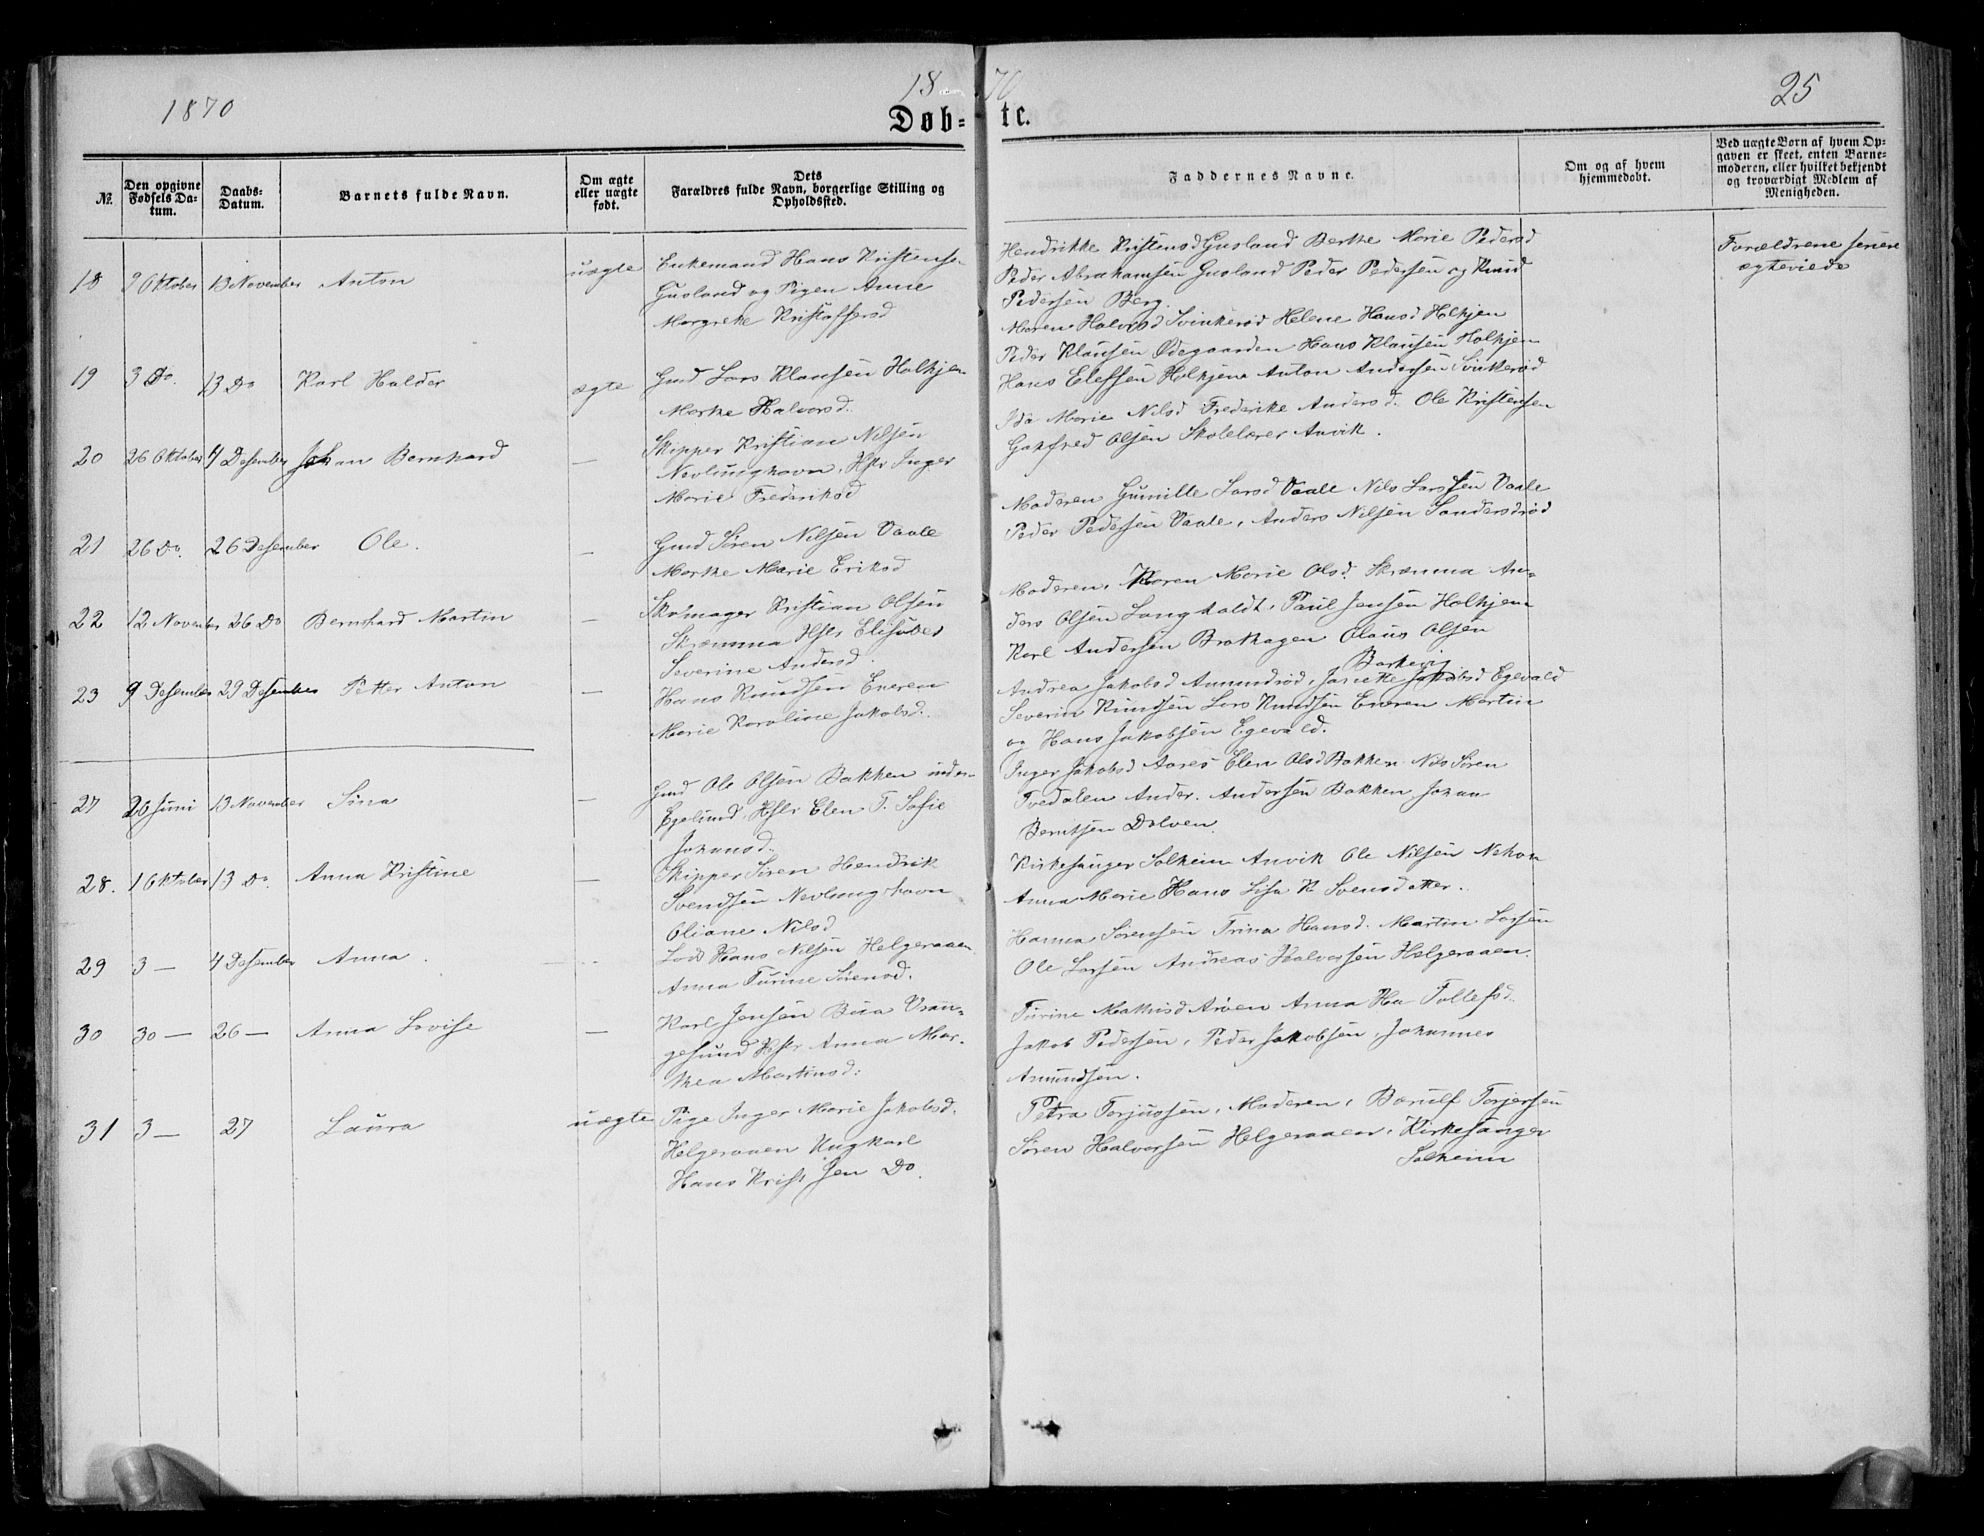 1870
1870
25
Døb-te.
№.
Den opgivne Fødsels Datum.
Daabs-Datum.
Barnets fulde Navn.
Om ægte eller uægte født.
Dets Forældres fulde Navn, borgerlige Stilling og Opholdssted.
Faddernes Navne.
Om og af hvem hjemmedøbt.
Ved uægte Børn af hvem Opgaven er skeet, enten Barnemoderen, eller hvilket bekjendt og troværdigt Medlem af Menigheden.
18 9 Oktober 13 November Anton uægte
Enkemand Hans Kristens.
Gusland og Pigen Anne
Margrete Kristoffersd
Hendrikke Kristensd Gusland Berthe Marie Pedersd
Peder Abrahamsen Gusland Peder Pedersen og Knud
Pedersen Berg.
Forældrene senere
ægteviede
19 3 Do. 13 Do Karl Haldor ægte
Gmd Lars Klausen Holhjem
Marthe Halvorsd.
Maren Halvorsd Svinkerød Helene Hansd Holhjem
Peder Klausen Ødegaarden Hans Klausen Holhjem
Hans Elefsen Holhjem Anton Andersen Svinkerød
20 26 Oktober 4 Desember Johan Bernhard —
Skipper Kristian Nilsen
Nevlunghavn, Hstr Inger
Marie Frederiksd
Ida Marie Nilsd Frederike Andersd. Ole Kristensen
Gotfred Olsen Skolelærer Anvik.
21 26 Do. 26 Desember Ole. —
Gmd Søren Nilsen Vaale
Marthe Marie Eriksd
Moderen Gunnille Larsd Vaale Nils Larssen Vaale
Peder Pedersen Vaale, Anders Nilsen Sandersdrød
22 12 November 26 Do Bernhard Martin —
Skomager Kristian Olsen
Skræmma Hstr Elisabet
Severine Andersd.
Moderen, Karen Marie Olsd. Skræmma An-
ders Olsen Langholdt, Paul Jensen Holhjem
Karl Andersen Brathagen Olaus Olsen
Barkevig
23 9 Desember 29 Desember Petter Anton —
Hans Knudsen Eneren
Marie Karoline Jakobsd.
Andrea Jakobsd Amundrød, Janette Jakobsd Egevald
Severin Knudsen Lars Knudsen Eneren Martin
og Hans Jakobsen Egevald.
27 26 Juni 13 November Sina —
Gmd Ole Olsen Bakken under
Egelund, Hstr Elen T. Sofie
Johansd.
Inger Jakobsd Aares Elen Olsd Bakken Nils Søren
Tvedalen Ander. Andersen Bakken Johan
Berntsen Dolven
28. 1 Oktober 13 Do. Anna Kristine —
Skipper Søren Hendrik
Svendsen Nevlunghavn
Oliane Nilsd
Kirkesanger Solheim Anvik Ole Nilsen
Anna Marie Hans Lisa K Svensdatter.
29 3 — 4 Desember Anna.
Lods Hans Nilsen Helgeraaen
Anna Turine Sørensd.
Hanna Sørensen Trina Hansd. Martin Larsen
Ole Larsen Andreas Halvorsen Helgeraaen.
30 30 — 26 — Anna Lovise —
Karl Jensen Bua Vran-
gesund Hstr Anna Mar-
thea Martinsd.
Turine Mathisd Arøen Anna Ha Tollefsd.
Jakob Pedersen, Peder Jakobsen, Johannes
Amundsen.
31 3 — 27 Laura uægte
Pige Inger Marie Jakobsd.
Helgeraaen Ungkarl
Hans Krist Jen Do.
Petra Torjussen, Moderen, Barulf Torjersen
Søren Halvorsen Helgeraaen, Kirkesanger
Solheim